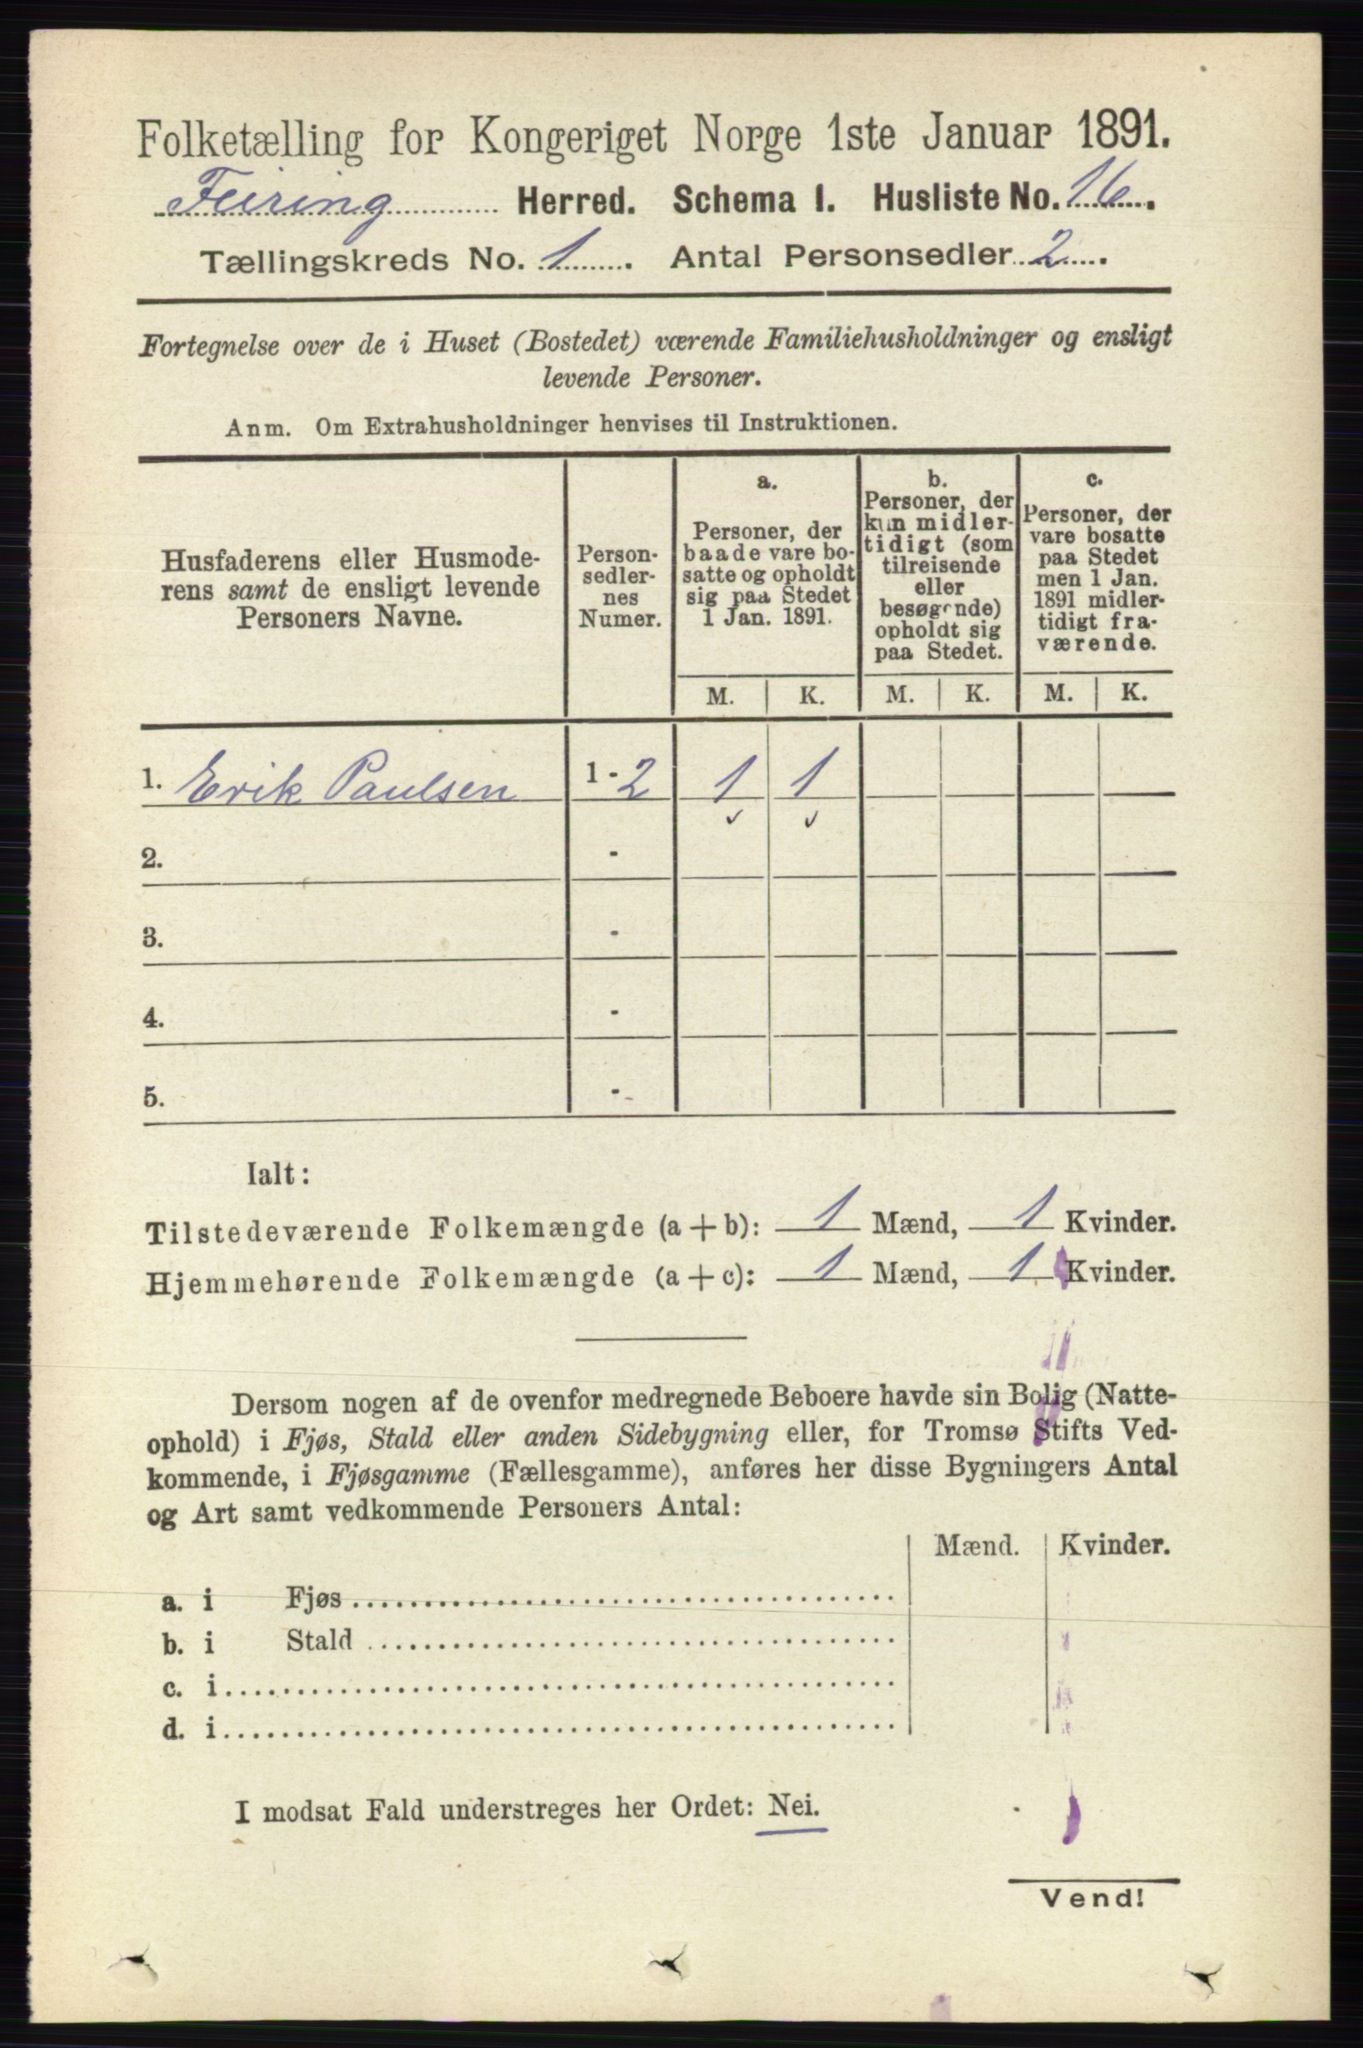 Folketælling for Kongeriget Norge 1ste Januar 1891.
Feiring Herred. Schema I. Husliste No. 16.
Tællingskreds No. 1. Antal Personsedler 2.
Fortegnelse over de i Huset (Bostedet) værende Familiehusholdninger og ensligt
levende Personer.
Anm. Om Extrahusholdninger henvises til Instruktionen.
Husfaderens eller Husmode-
rens samt de ensligt levende
Personers Navne.
Person-
sedler-
nes
Numer.
a.
Personer, der
baade vare bo-
satte og opholdt
sig paa Stedet
1 Jan. 1891.
b.
Personer, der
kun midler-
tidigt (som
tilreisende
eller
besøgende)
opholdt sig
paa Stedet.
c.
Personer, der
vare bosatte
paa Stedet
men 1 Jan.
1891 midler-
tidigt fra-
værende.
M. K. M. K. M. K.
1. Erik Paulsen 1 - 2 1 1
2. -
3. -
4. -
5. -
Ialt:
Tilstedeværende Folkemængde (a + b): 1 Mænd, 1 Kvinder.
Hjemmehørende Folkemængde (a + c): 1 Mænd, 1 Kvinder.
Dersom nogen af de ovenfor medregnede Beboere havde sin Bolig (Natte-
ophold) i Fjøs, Stald eller anden Sidebygning eller, for Tromsø Stifts Ved-
kommende, i Fjøsgamme (Fællesgamme), anføres her disse Bygningers Antal
og Art samt vedkommende Personers Antal:
Mænd. Kvinder.
a. i Fjøs
b. i Stald
c. i
d. i
I modsat Fald understreges her Ordet: Nei.
Vend!